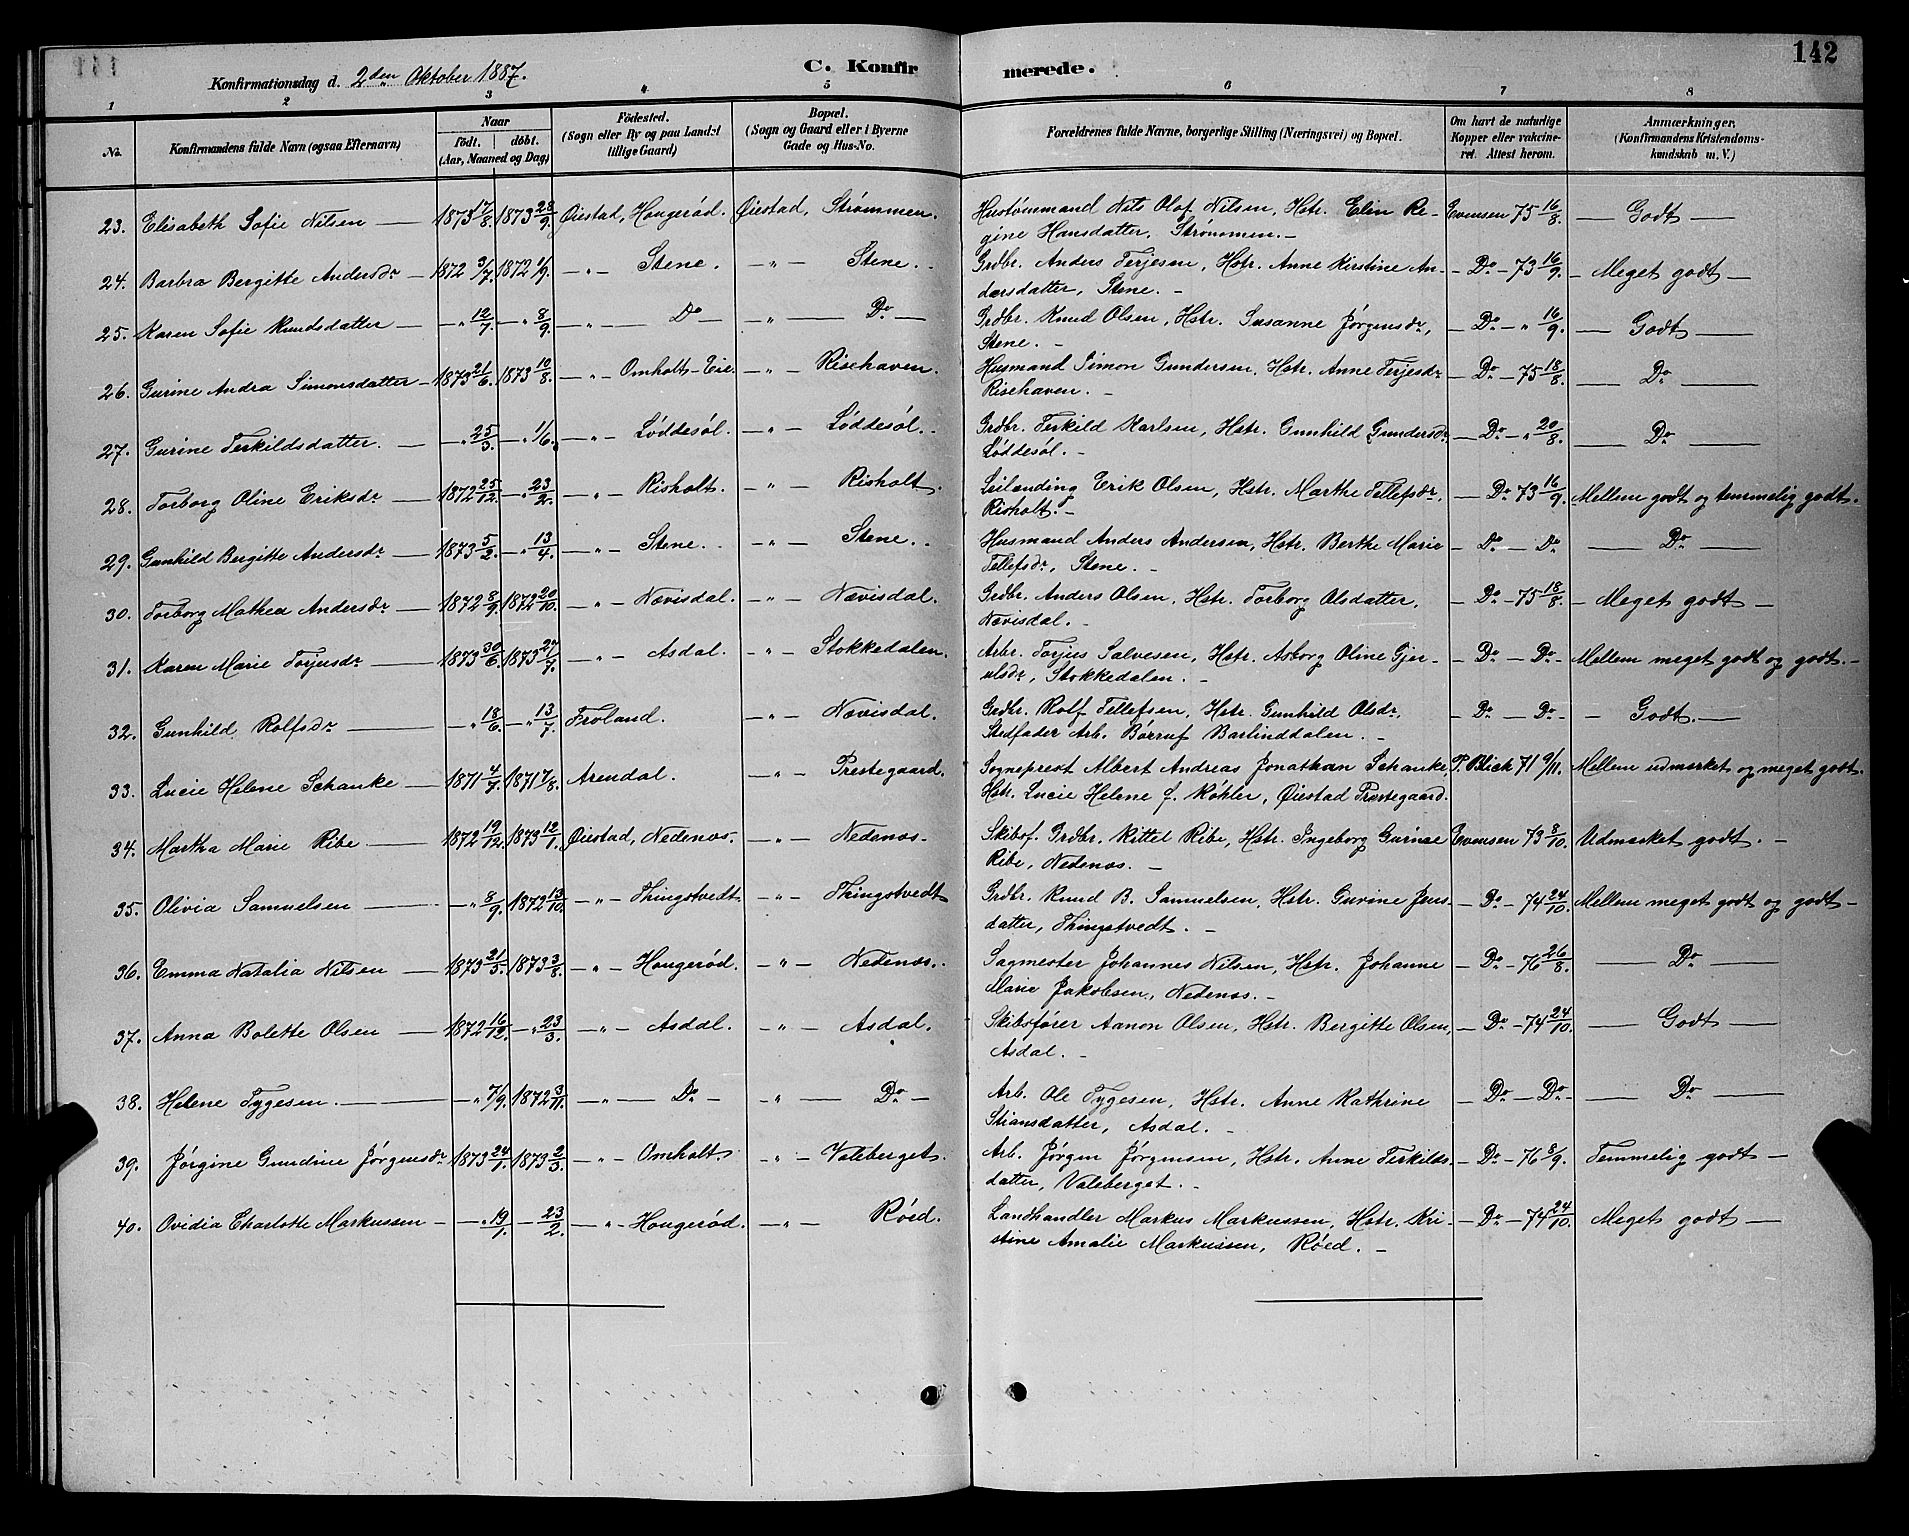 142
Konfirmationsdag d. 2den Oktober 1887.
C. Konfirmerede.
1 2 3 4 5 6 7 8
No. Konfirmandens fulde Navn (ogsaa Efternavn) Naar født. døbt. (Aar, Maaned og Dag) Fødested. (Sogn eller By og paa Landet tillige Gaard) Bopæl. (Sogn og Gaard eller i Byerne Gade og Hus-No. Forældrenes fulde Navne, borgerlige Stilling (Næringsvei) og Bopæl. Om havt de naturlige Kopper eller vakcineret. Attest herom. Anmærkninger. (Konfirmandens Kristendomskundskab m. V.)
23. Elisabeth Sofie Nilsen — 1873 17/8. 1873 28/9. Øiestad, Hougerød. Øiestad, Strømmen. Hustømmand Nils Olaf Nilsen, Hstr. Elin Re- Evensen 75 16/8. — Godt —
gine Hansdatter, Strømmen. —
24. Barbra Bergitte Andersdr — 1872 3/7. 1872 1/9. — " — Stene. — " — Stene. Grdbr. Anders Terjesen, Hstr. Anne Kirstine An- — Do — 73 16/9. — Meget godt —
dersdatter, Stene. —
25. Karen Sofie Knudsdatter — — " 12/7 — " 8/9. — " — Do — — " — Do — Grdbr. Knud Olsen, Hstr. Susanne Jørgensdr, — Do — " 16/9. — Godt —
Stene. —
26. Gurine Andra Simonsdatter — 1873 21/6. 1873 10/8. — " — Omholt-Eie. — " — Risehaven. Husmand Simon Gundersen, Hstr. Anne Terjesdr — Do — 75 18/8. — Do —
Risehaven. —
27. Gurine Terkildsdatter. — — " 25/3. — " 1/6. — " — Løddesøl. — " — Løddesøl. Grdbr. Terkild Karlsen, Hstr. Gunhild Gundersdr, — Do — " 20/8. — Do —
Løddesøl. —
28. Torborg Oline Eriksdr — 1872 25/12. — " 23/2. — " — Risholt. — " — Risholt. Leilænding Erik Olsen, Hstr. Marthe Tellefsdr, — Do 73 16/9. Mellem godt og temmelig godt.
Risholt. —
29. Gunhild Bergitte Andersdr — 1873 5/2. — " 13/4. — " — Stene. — " — Stene. Husmand Anders Andersen, Hstr. Berthe Marie — Do — Do — Do —
Tellefsdr, Stene. —
30. Torborg Mathea Andersdr — 1872 8/9. 1872 20/10. — " — Nævisdal. — " — Nævisdal. Grdbr. Anders Olsen, Hstr. Torborg Olsdatter, — Do — 75 18/8. — Meget godt —
Nævisdal. —
31. Karen Marie Torjusdr — 1873 30/6. 1873 27/7. — " — Asdal. — " — Stokkedalen. Arbr. Torjus Salvesen, Hstr. Asborg Oline Gjer- — Do — Do — Mellem meget godt og godt. —
ulsdr, Stokkedalen. —
32. Gunhild Rolfsdr — — " 18/6 — " 13/7. Froland. — " — Nævisdal. Grdbr. Rolf Tellefsen, Hstr. Gunhild Olsdr, — Do — Do — — Godt. —
Stedfader Arb. Børruf Barlinddalen. —
33. Lucie Helene Schanke — 1871 4/7. 1871 7/8. Arendal. — " — Prestegaard. Sogneprest Albert Andreas Jonathan Schanke, P. Blich 71 9/11. Mellem udmerket og meget godt.
Hstr. Lucie Helene f. Køhler, Øiestad Prestegaard.
34. Martha Marie Ribe — 1872 19/12. 1873 12/1. Øiestad, Nedenæs. — " — Nedenæs. Skibsf. Grdbr. Kittel Ribe, Hstr. Ingeborg Gurine Evensen 73 8/10. Udmerket godt. —
Ribe, Nedenæs. —
35. Olivia Samuelsen — — " 8/9. 1872 13/10. — " — Thingstvedt — " — Thingstvedt Grdbr. Knud B. Samuelsen, Hstr. Gurine Jens- — Do — 74 24/10. Mellem meget godt og godt —
datter, Thingstvedt. —
36. Emma Natalia Nilsen — 1873 21/5. 1873 3/8. — " — Hougerød. — " — Nedenæs. Sagmester Johannes Nilsen, Hstr. Johanne — Do — 76 26/8. — Do —
Marie Jakobsen, Nedenæs. —
37. Anna Bolette Olsen — 1872 16/12. — " 23/3. — " — Asdal. — " — Asdal. Skibsfører Aanon Olsen, Hstr. Bergitte Olsen, — Do — 74 24/10. — Godt —
Asdal. —
38. Helene Tygesen. — — " 7/9. 1872 3/11. — " — Do — — " — Do — Arb. Ole Tygesen, Hstr. Anne Kathrine — Do — Do — — Do —
Stiansdatter, Asdal. —
39. Jørgine Gundine Jørgensdr 1873 24/1. 1873 2/3. — " — Omholt. — " — Valeberget. Arb. Jørgen Jørgensen, Hstr. Anne Terkilds- — Do — 76 8/9. Temmelig godt —
datter, Valeberget. —
40. Ovidia Charlotte Markussen — — " 19/1. — 23/2. — " — Hougerød. — " — Røed. Landhandler Markus Markussen, Hstr. Kri- — Do — 74 24/10. Meget godt —
stine Amalie Markussen, Røed. —